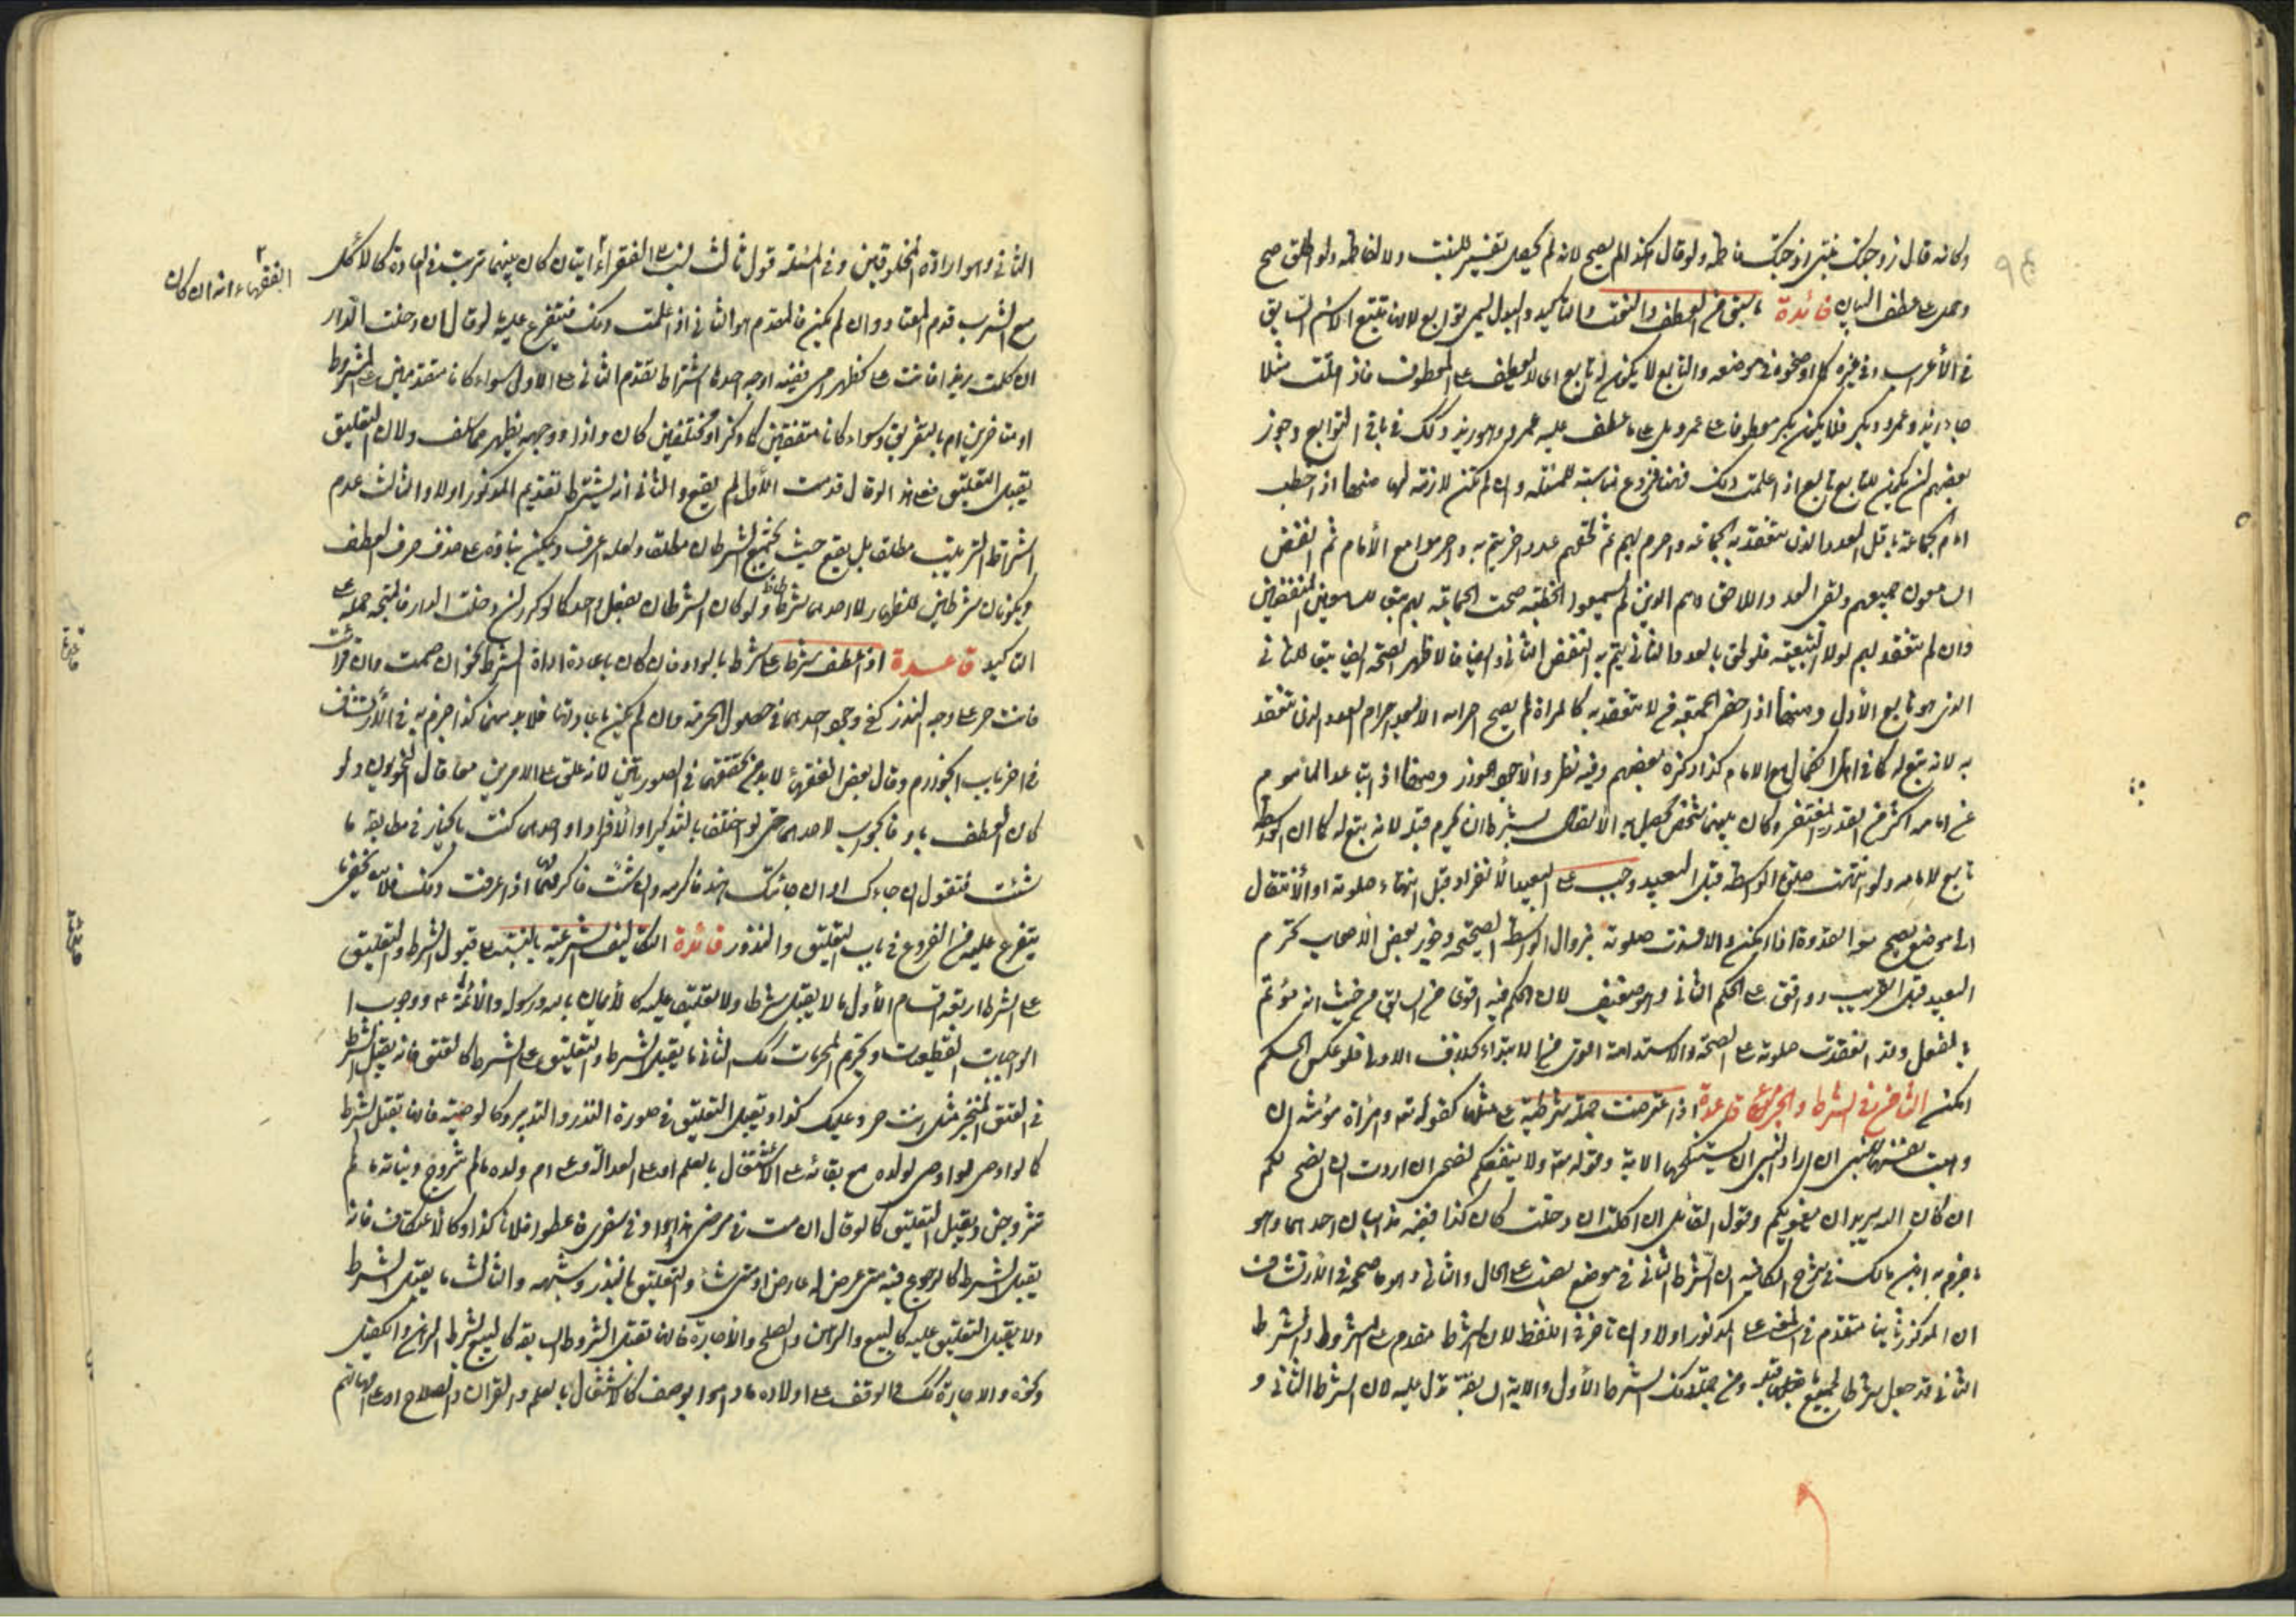 وكانه قال زوجتك بنتي زوجتك فاطمة ولو قال هكذا لم يصح لانه لم يجعل تفسيرا للبنت ولا لفاطمة ولو اطلق صح
وحمل على عطف البيان فائدة ما سبق من العطف والنعت والتاكيد والبدل يسمى توابع لانها تتبع الاسم السابق
في الأعراب وفي غيره كما اوضحوه في موضعه والتابع لا يكون له تابع اى لا يعطف على المعطوف فاذا قلت مثلا
جاء زيد وعمرو وبكر فلا يكون بكر معطوفا على عمرو بل على ما عطف عليه عمرو وهو زيد وكذلك في باقي التوابع وجوز
بعضهم ان يكون للتابع تابع اذا علمت ذلك فهنا فروع مناسبة للمسئلة وان لم تكن لازمة لها منها اذا خطب
امام الجماعة بأقل العدد الذى تنعقد به الجماعة واحرم بهم ثم لحقهم عدد اخر يتم به واحرموا مع الأمام ثم انفض
السامعون جميعهم وبقى العدد اللاحق وهم الذين لم يسمعوا الخطبة صحت الجماعة لهم تبعا للسامعين المنفضين
وان لم تنعقد لهم لولا التبعية فلو لحق بالعدد الثاني من يتم به ثم انفض الثاني ايضا فالاظهر الصحة ايضا تبعا للثاني
الذى هو تابع الأول ومنها اذا حضر الجمعة من لا تنعقد به كالمراة لم يصح احرامه الا بعد احرام العدد الذى تنعقد
به لانه تبع له كما في اهل الكمال مع الامام كذا ذكره بعضهم وفيه نظر والأجود الجواز ومنها اذا تباعد المأموم
عن امامه اكثر من القدر المغتفر وكان بينهما شخص يحصل به الأتصال يشترط ان يحرم قبله لانه تبع له كما ان الواسطة
تابع للامام ولو انتهت صلوة الواسطة قبل البعيد وجب على البعيد الأنفراد قبل انتهاء صلوته او الأنتقال
الى موضع يصح معه القدوة اذا امكن والا فسدت صلوته بزوال الواسطة الصحيحة وجوز بعض الأصحاب تحرم
البعيد قبل القريب ووافق على الحكم الثاني وهو ضعيف لان الحكم فيه اقوى من السابق من حيث انه مؤتم
بالفعل وقد انعقدت صلوته على الصحة والاستدامة اقوى من الابتداء بخلاف الاول فلو عكس الحكم
امكن الثامن في الشرط والجزاء قاعدة اذا اعترضت جملة شرطية على مثلها كقوله تعالى وامراة مؤمنة ان
وهبت نفسها للنبي ان اراد النبي ان يستنكحها الاية وقوله تعالى ولا ينفعكم نصحي ان اردت ان انصح لكم
ان كان الله يريد ان يغويكم وقول القائل ان اكلت ان دخلت كان كذا ففيه مذهبان احدهما وهو
ما جزم به ابن مالك في شرح الكافية ان الشرط الثاني في موضع نصب على الحال والثاني وهو ما صححه في الأرتشاف
ان المذكور ثانيا متقدم في المعنى على المذكور اولا وان تاخر في اللفظ لان الشرط متقدم على المشروط والشرط
الثاني قد جعل شرطا لجميع ما قبله ومن جملة ذلك الشرط الأول والاية السابقة تدل عليه لان الشرط الثاني و
الثاني وهو ارادة المخلوقين وفي المسئلة قول ثالث لبعض الفقراء ايتان كان بينهما ترتيب في العادة كالأكل
الفقهاء انه ان كان
مع الشرب قدم المعتاد وان لم يكن فالمقدم هو الثاني اذا علمت ذلك فيتفرع عليه لو قال ان دخلت الدار
ان كلمت زيدا فانت على كظهر امى ففيه اوجه احدها اشتراط تقدم الثاني على الاول سواء كانا متقدمين على المشروط
او متاخرين ام بالتفريق وسواء كانا متفقين كما ذكر او مختلفين كان واذا ووجهه يظهر مما سلف ولان التعليق
يقبل التعليق فعلى هذا لو قال قدمت الأول لم يقع والثاني انه يشترط تقديم المذكور اولا والثالث عدم
اشتراط الترتيب مطلقا بل يقع حيث يجتمع الشرطان مطلقا ولعله اعرف ويمكن بناؤه على حذف حرف العطف
ويكونان شرطين للظهار لا احدهما شرطا ولو كان الشرطان بفعل واحد كما لو كرر ان دخلت الدار فالمتجه حمله على
التاكيد قاعدة اذا عطف شرط على شرط بالواو فان كان باعادة اداة الشرط نحو ان صمت وان قرات
فانت حر على وجه النذر كفى وجود احدهما في حصول الحرية وان لم يكن باعادتها فلا بد منهما كذا جزم به في الأرتشاف
في اخر باب الجوازم وقال بعض الفقهاء لا بد من تحققهما في الصورتين لانه علق على الامرين معا قال النحويون ولو
كان العطف باو فالجواب لاحدهما حتى لو اختلفا بالتذكير او الأفراد او احدهما كنت بالخيار في مطابقة ما
شئت فتقول ان جاءك او ان جائتك هند فاكرمه وان شئت فاكرمها اذا عرفت ذلك فلا يخفى ما
يتفرع عليه من الفروع في باب التعليق والنذور فائدة التكاليف الشرعية بالنسبة الى قبول الشرط والتعليق
على الشرط اربعة اقسام الأول ما لا يقبل شرطا ولا تعليقا عليه كالأيمان بالله ورسوله والأئمة ع ووجوب ا
الواجبات القطعيات وتحريم المحرمات كذلك الثاني ما يقبل الشرط والتعليق على الشرط كالعتق فانه يقبل الشرط
في العتق المنجز مثل انت حر وعليك كذا ويقبل التعليق في صورة النذر والتدبير وكالوصية فانها تقبل الشرط
كما لو اوصى لولده مع بقائه على الأشتغال بالعلم او على العدالة وعلى ام ولده ما لم تتزوج وبناته ما لم
تتزوجن ويقبل التعليق كما لو قال ان مت في مرضى هذا او في سفرى فاعطوا فلانا كذا وكالاعتكاف فانه
يقبل الشرط كالرجوع فيه متى عرض له عارض او متى شاء والتعليق بالنذر وشبهه والثالث ما يقبل الشرط
ولا يقبل التعليق عليه كالبيع والرهن والصلح والأجارة فانها تقبل الشروط السابقة كالبيع بشرط الرهن والكفيل
ونحوه والاجارة كذلك والوقف على اولاده ما داموا بوصف كالاشتغال بالعلم والقران والصلاح او على امهاتهم
قاعدة